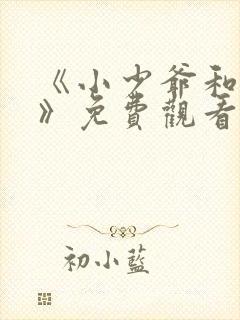 《小少爺和
》免費觀看
初小藍